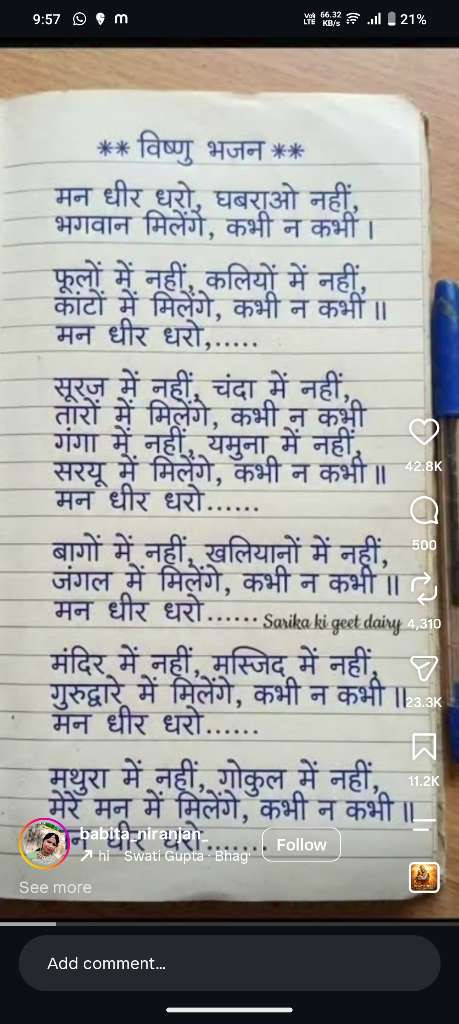 9:57
66.32 KB/s
21%
** विष्णु भजन **
मन धीर धरो, घबराओ नहीं,
भगवान मिलेंगे, कभी न कभी ।
फूलों में नहीं, कलियों में नहीं,
कांटों में मिलेंगे, कभी न कभी ॥
मन धीर धरो,.....
सूरज में नहीं, चंदा में नहीं,
तारों में मिलेंगे, कभी न कभी
गंगा में नहीं, यमुना में नहीं,
सरयू में मिलेंगे, कभी न कभी ॥
मन धीर धरो......
बागों में नहीं, खलियानों में नहीं,
जंगल में मिलेंगे, कभी न कभी ॥
मन धीर धरो......
Sarika ki geet dairy
मंदिर में नहीं, मस्जिद में नहीं,
गुरुद्वारे में मिलेंगे, कभी न कभी ॥
मन धीर धरो......
मथुरा में नहीं, गोकुल में नहीं,
मेरे मन में मिलेंगे, कभी न कभी ॥
धीर धरो.......
42.8K
500
4,310
23.3K
11.2K
babita_niranjan_
Follow
hi Swati Gupta · Bhag
See more
Add comment...